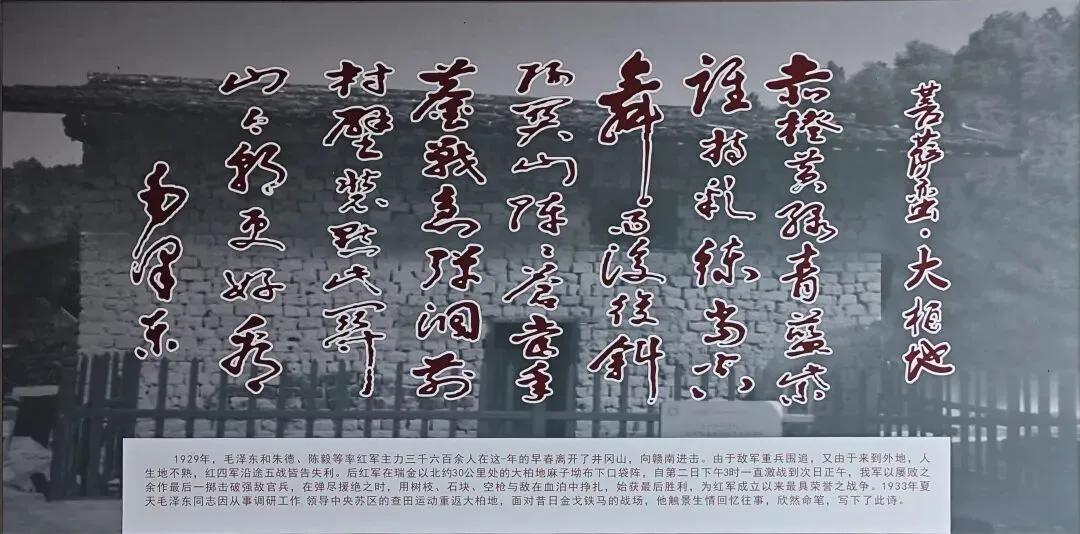 菩萨蛮·大柏地
赤橙黄绿青蓝紫
谁持彩练當空
舞雨後復斜
陽関山陣陣蒼當年
鏖戰急彈洞前
村壁裝點此関
山今朝更好看
毛澤东
1929年，毛泽东和朱德、陈毅等率红军主力三千六百余人在这一年的早春离开了井冈山，向赣南进击。由于敌军重兵围追，又由于来到外地，人
生地不熟，红四军沿途五战皆告失利。后红军在瑞金以北约30公里处的大柏地麻子坳布下口袋阵，自第二日下午3时一直激战到次日正午，我军以屡败之
余作最后一掷击破强敌官兵，在弹尽援绝之时，用树枝、石块、空枪与敌在血泊中挣扎，始获最后胜利，为红军成立以来最具荣誉之战争。1933年夏
天毛泽东同志因从事调研工作 领导中央苏区的查田运动重返大柏地，面对昔日金戈铁马的战场，他触景生情回忆往事，欣然命笔，写下了此诗。